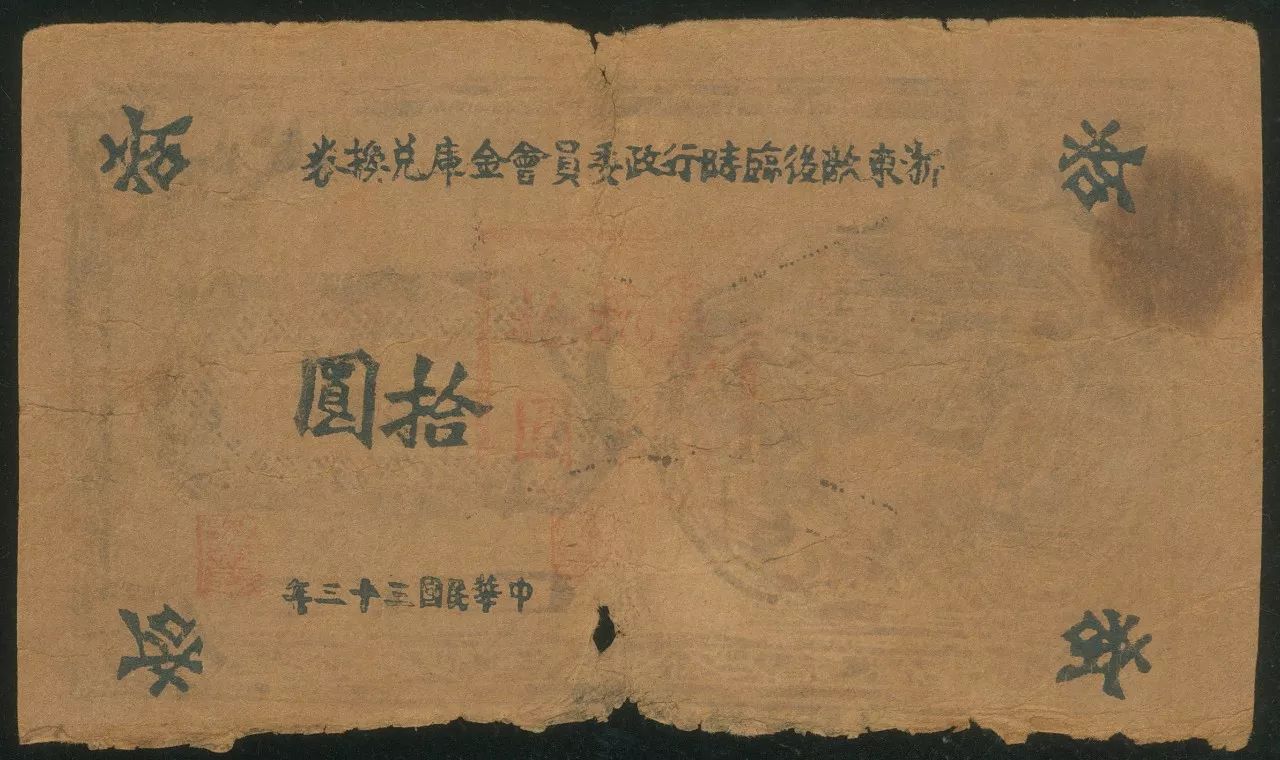 浙東敵後臨時行政委員會金庫兑換券
拾
拾
拾圓
中華民國三十三年
拾
拾